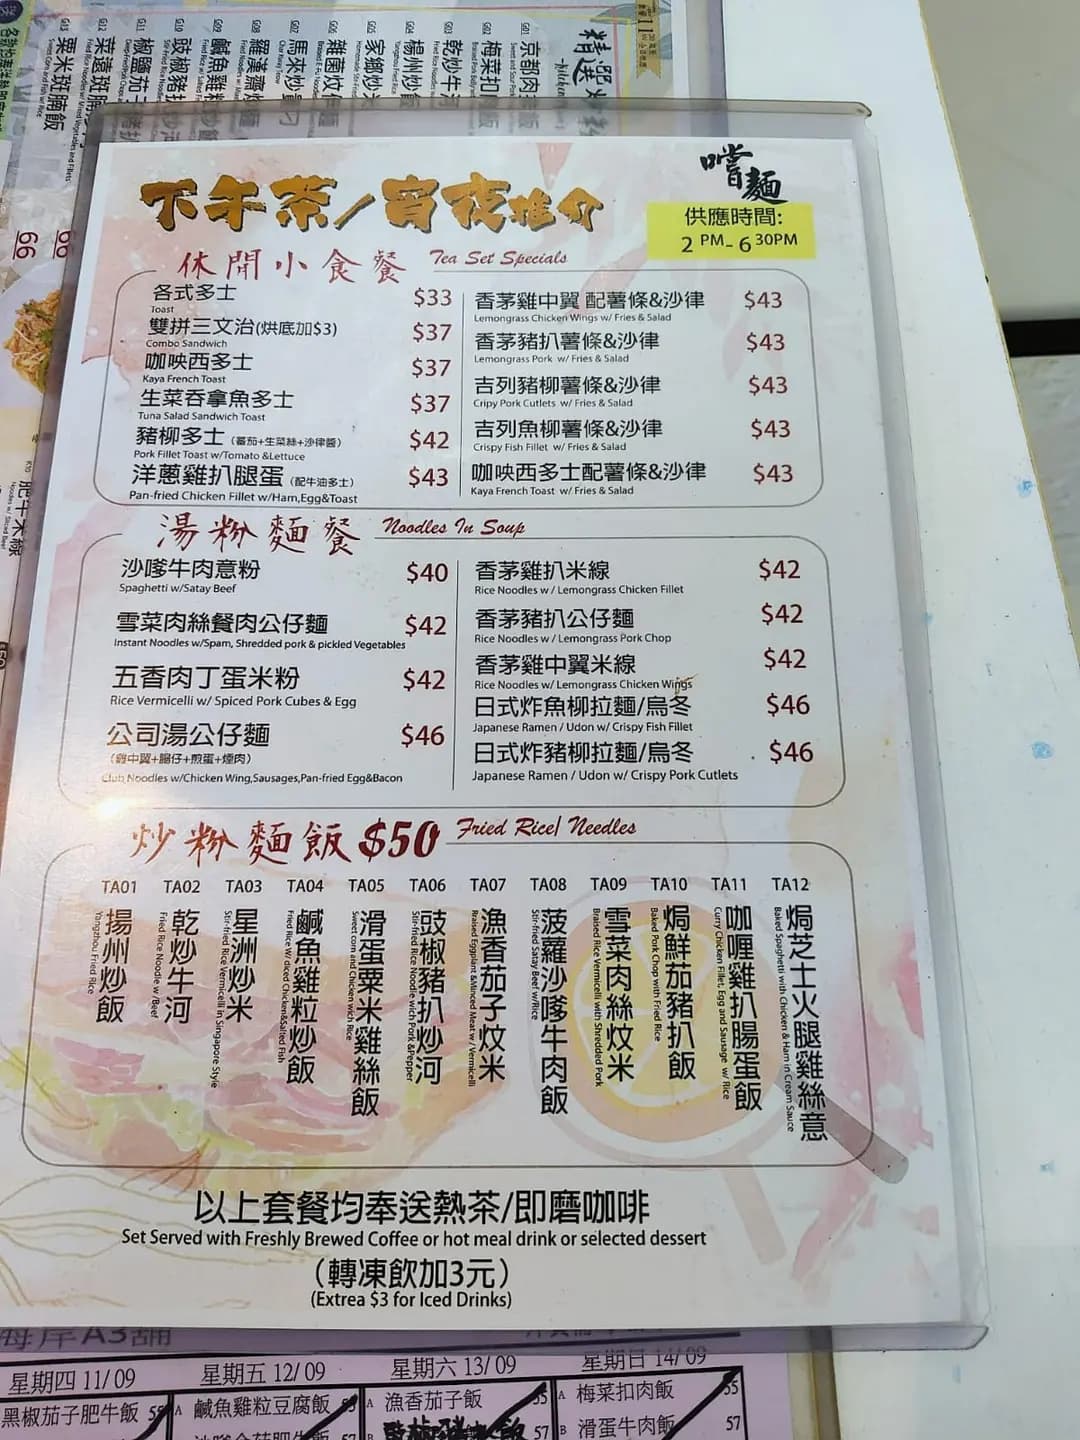 嚐麵
下午茶/宵夜推介
供應時間:
2 PM- 6 30PM
休閒小食餐 Tea Set Specials
各式多士 $33
Toast
雙拼三文治(烘底加$3) $37
Combo Sandwich
咖央西多士 $37
Kaya French Toast
生菜吞拿魚多士 $37
Tuna Salad Sandwich Toast
豬柳多士 (蕃茄+生菜絲+沙律醬) $42
Pork Fillet Toast w/Tomato &Lettuce
洋蔥雞扒腿蛋 (配牛油多士) $43
Pan-fried Chicken Fillet w/Ham,Egg&Toast
香茅雞中翼 配薯條&沙律 $43
Lemongrass Chicken Wings w/ Fries & Salad
香茅豬扒薯條&沙律 $43
Lemongrass Pork w/ Fries & Salad
吉列豬柳薯條&沙律 $43
Cripy Pork Cutlets w/ Fries & Salad
吉列魚柳薯條&沙律 $43
Crispy Fish Fillet w/ Fries & Salad
咖央西多士配薯條&沙律 $43
Kaya French Toast w/ Fries & Salad
湯粉麵餐 Noodles In Soup
沙嗲牛肉意粉 $40
Spaghetti w/Satay Beef
雪菜肉絲餐肉公仔麵 $42
Instant Noodles w/Spam, Shredded pork & pickled Vegetables
五香肉丁蛋米粉 $42
Rice Vermicelli w/ Spiced Pork Cubes & Egg
公司湯公仔麵 $46
(雞中翼+腸仔+煎蛋+煙肉)
Club Noodles w/Chicken Wing,Sausages,Pan-fried Egg&Bacon
香茅雞扒米線 $42
Rice Noodles w / Lemongrass Chicken Fillet
香茅豬扒公仔麵 $42
Rice Noodles w / Lemongrass Pork Chop
香茅雞中翼米線 $42
Rice Noodles w/ Lemongrass Chicken Wings
日式炸魚柳拉麵/烏冬 $46
Japanese Ramen / Udon w/ Crispy Fish Fillet
日式炸豬柳拉麵/烏冬 $46
Japanese Ramen / Udon w/ Crispy Pork Cutlets
炒粉麵飯 $50 Fried Rice/ Needles
TA01 揚州炒飯
Yangzhou Fried Rice
TA02 乾炒牛河
Fried Rice Noodle w/Beef
TA03 星洲炒米
Stir-fried Rice Vermicelli in Singapore Style
TA04 鹹魚雞粒炒飯
Fried Rice W/ diced Chicken&Salted Fish
TA05 滑蛋粟米雞絲飯
Sweet corn and Chicken wich Rice
TA06 豉椒豬扒炒河
Stir-fried Rice Noodle wich Pork &Pepper
TA07 漁香茄子炆米
Rraised Eggplant &Minced Meat w / Vermicelli
TA08 菠蘿沙嗲牛肉飯
Stir-fried Satay Beef w/Rice
TA09 雪菜肉絲炆米
Braised Rice Vermicelli with Shredded Pork
TA10 焗鮮茄豬扒飯
Baked Pork Chop with Fried Rice
TA11 咖喱雞扒腸蛋飯
Curry Chicken Fillet, Egg and Sausage w/ Rice
TA12 焗芝士火腿雞絲意
Baked Spaghetti with Chicken & Ham in Cream Sauce
以上套餐均奉送熱茶/即磨咖啡
Set Served with Freshly Brewed Coffee or hot meal drink or selected dessert
(轉凍飲加3元)
(Extrea $3 for Iced Drinks)
海岸A3舖
星期四 11/09
黑椒茄子肥牛飯
星期五 12/09
A 鹹魚雞粒豆腐飯
星期六 13/09
A 漁香茄子飯 55
B 57
星期日 14/09
A 梅菜扣肉飯 55
B 滑蛋牛肉飯 57